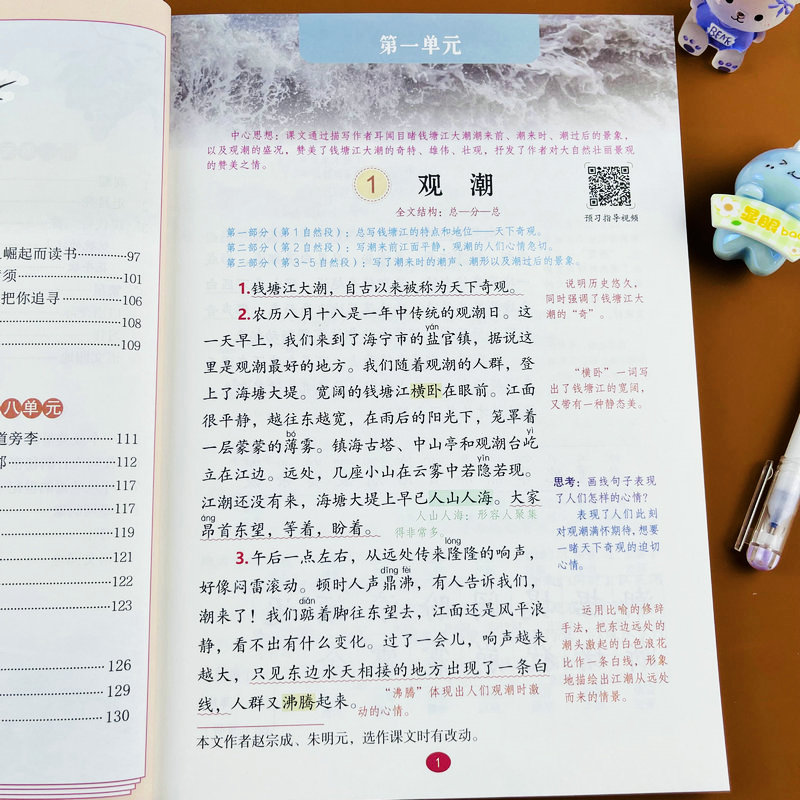 崛起而读书 97
须 101
把你追寻 106
108
109
八单元
道旁李 111
112
117
117
119
121
122
123
126
129
130
第一单元
中心思想：课文通过描写作者耳闻目睹钱塘江大潮潮来前、潮来时、潮过后的景象，
以及观潮的盛况，赞美了钱塘江大潮的奇特、雄伟、壮观，抒发了作者对大自然壮丽景观
的赞美之情。
1 观 潮
预习指导视频
全文结构：总—分—总
第一部分（第1自然段）：总写钱塘江的特点和地位——天下奇观。
第二部分（第2自然段）：写潮来前江面平静，观潮的人们心情急切。
第三部分（第3-5自然段）：写了潮来时的潮声、潮形以及潮过后的景象。
1.钱塘江大潮，自古以来被称为天下奇观。
说明历史悠久，
同时强调了钱塘江大
潮的“奇”。
2.农历八月十八是一年中传统的观潮日。这
yán
一天早上，我们来到了海宁市的盐官镇，据说这
里是观潮最好的地方。我们随着观潮的人群，登
上了海塘大堤。宽阔的钱塘江横卧在眼前。江面
很平静，越往东越宽，在雨后的阳光下，笼罩着
“横卧”一词写
出了钱塘江的宽阔，
又带有一种静态美。
bó yì
一层蒙蒙的薄雾。镇海古塔、中山亭和观潮台屹
yǐn
立在江边。远处，几座小山在云雾中若隐若现。
江潮还没有来，海塘大堤上早已人山人海。大家
áng
昂首东望，等着，盼着。
人山人海：形容人聚集
得非常多。
思考：画线句子表现
了人们怎样的心情？
表现了人们此刻
对观潮满怀期待，想要
一睹天下奇观的迫切
心情。
lóng
3.午后一点左右，从远处传来隆隆的响声，
dǐng fèi
好像闷雷滚动。顿时人声鼎沸，有人告诉我们，
diǎn
潮来了！我们踮着脚往东望去，江面还是风平浪
静，看不出有什么变化。过了一会儿，响声越来
越大，只见东边水天相接的地方出现了一条白
线，人群又沸腾起来。
“沸腾”体现出人们观潮时激
动的心情。
运用比喻的修辞
手法，把东边远处的
潮头激起的白色浪花
比作一条白线，形象
地描绘出江潮从远处
而来的情景。
本文作者赵宗成、朱明元，选作课文时有改动。
1
BEAR
显眼bao